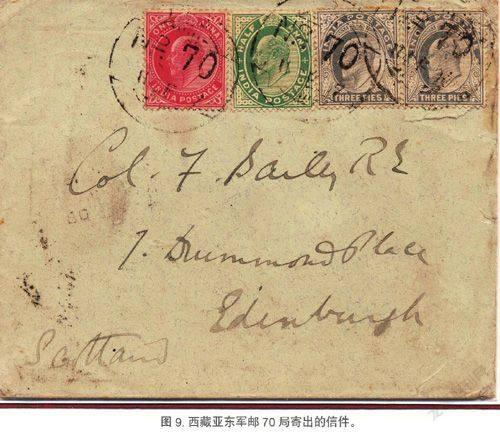 ONE ANNA
INDIA POSTAGE
HALF ANNA
INDIA POSTAGE
INDIA POSTAGE
THREE PIES
THREE PIES
70
70
70
Col. F. Bailey R.E
7. Drummond Place
Edinburgh
Scotland
图 9. 西藏亚东军邮 70 局寄出的信件。